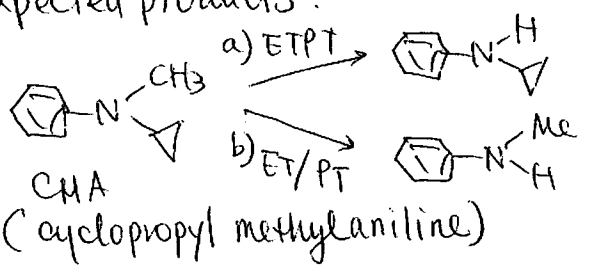 expected products:
a) ETPT
N H
N CH3
N Me
H
b) ET/PT
CMA
(cyclopropyl methylaniline)